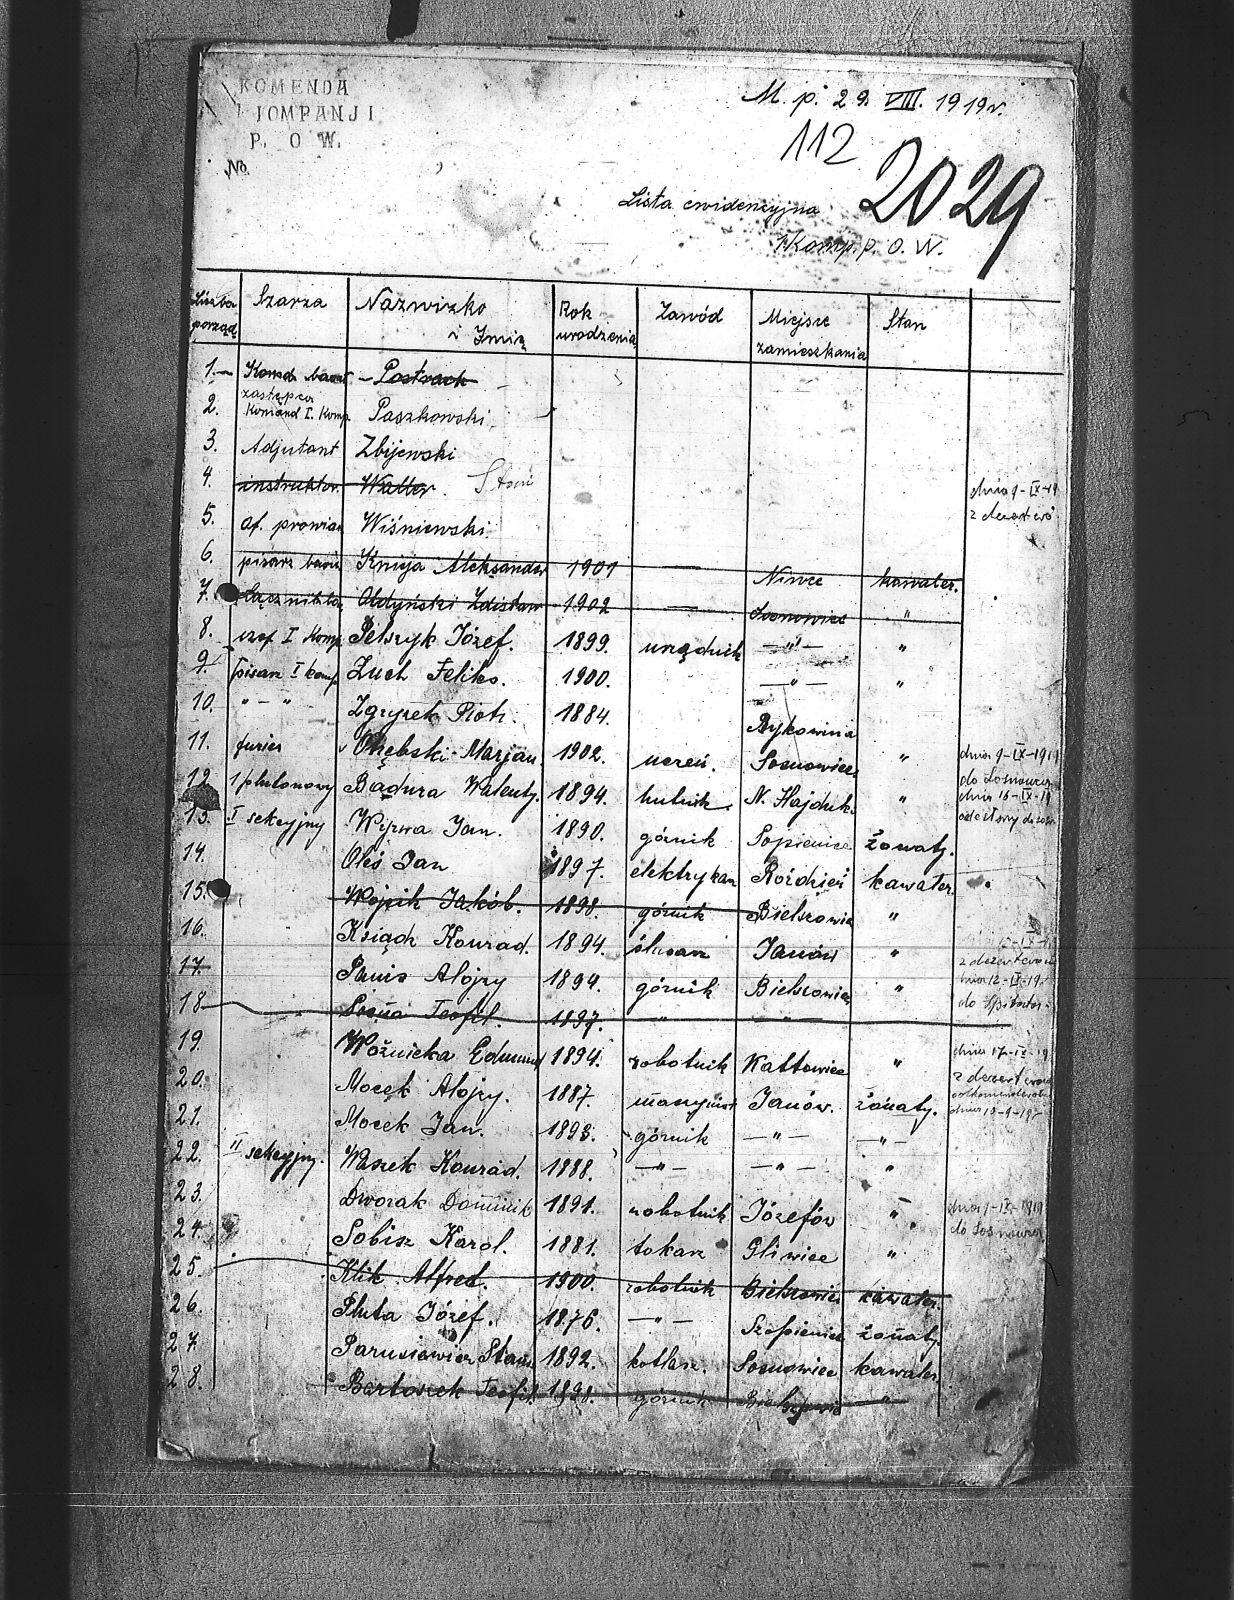 KOMENDA
KOMPANJI
P. O. W.
No.
M. p. 29. VIII. 1919 r.
112
2029
Lista ewidencyjna
1 Komp. P. O. W.
Liczba porząd Szarża Nazwizko i Imię Rok urodzenia Zawód Miejsce zamieszkania Stan
1. Komd. baonu Postrach
2. zastępca Komand I. Komp. Paszkowski
3. Adjutant Zbijewski
4. instruktor. Walter.
dnia 9-IX-19
5. of. prowian Wiśniewski
6. pisarz Knieja Aleksander 1901 — Niwce kawaler.
7. Zdzisław 1902 — Sosnowiec "
8. szef I Komp Józef. 1899. urzędnik —"— "
9. pisarz I komp. Zuch Feliks. 1900. —"— "
10. "—" Zgrzyzek Piotr. 1884. Bykowina
11. furier Marjan 1902. uczeń. Sosnowiec "
dnia 9-IX-1919
do Sosnowca
12. 1 plutonowy Badura Walenty. 1894. hutnik N. Hajduk. "
dnia 16-IX-19
13. I sekcyjny Jan. 1890. górnik Żonaty.
14. Oleś Jan 1897. elektrykarz Roździeń kawaler
15. Wojcik Jakób. 1898. górnik Bielszowice "
16. Ksiądz Konrad. 1894 ślusarz Janów "
17. Alojzy 1894. górnik Bielszowice "
dnia 12-IX-19.
18 Teofil. 1897. " —"—
19. Woźnicka Edmund 1894. robotnik Kattowice "
dnia 17-IX-19
20. Mocek Alojzy. 1887. Janów. żonaty.
21. Mocek Jan. 1893. górnik —"— —"—
22. II sekcyjny. Waszek Konrad. 1888. —"— —"— "
23. Dworak Dominik 1891. robotnik Józefów "
dnia 1-IX-1919
do Sosnowca
24. Sobisz Karol. 1881. tokarz Gliwice "
25. Klik Alfred. 1900. robotnik Bielszowice kawaler.
26. Pluta Józef. 1876. —"— Szopienice żonaty.
27. 1892. kotlarz. Sosnowiec kawaler
28. Bartoszek Teofil. 1898. górnik "